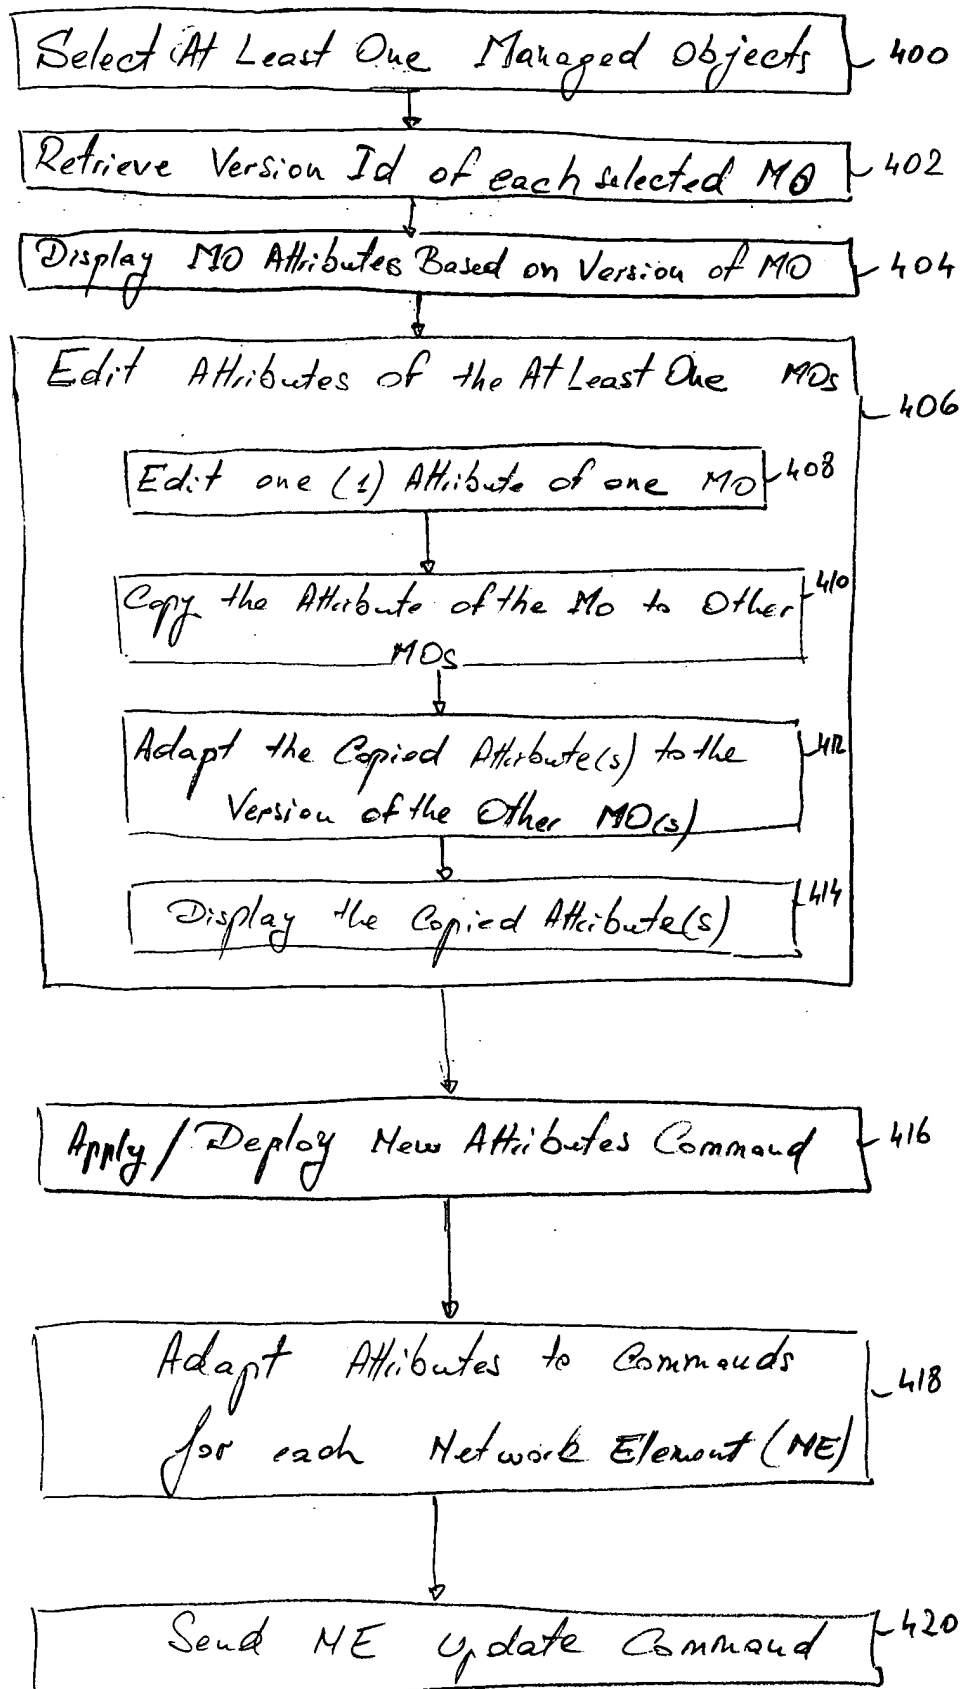 Select At Least One Managed Objects 400
Retrieve Version Id of each selected MO 402
Display MO Attributes Based on Version of MO 404
Edit Attributes of the At Least One MOs
406
Edit one (1) Attribute of one MO 408
Copy the Attribute of the MO to Other 410
MOs
Adapt the Copied Attribute(s) to the 412
Version of the Other MO(s)
Display the Copied Attribute(s) 414
Apply / Deploy New Attributes Command 416
Adapt Attributes to Commands
418
for each Network Element (NE)
Send NE update Command 420